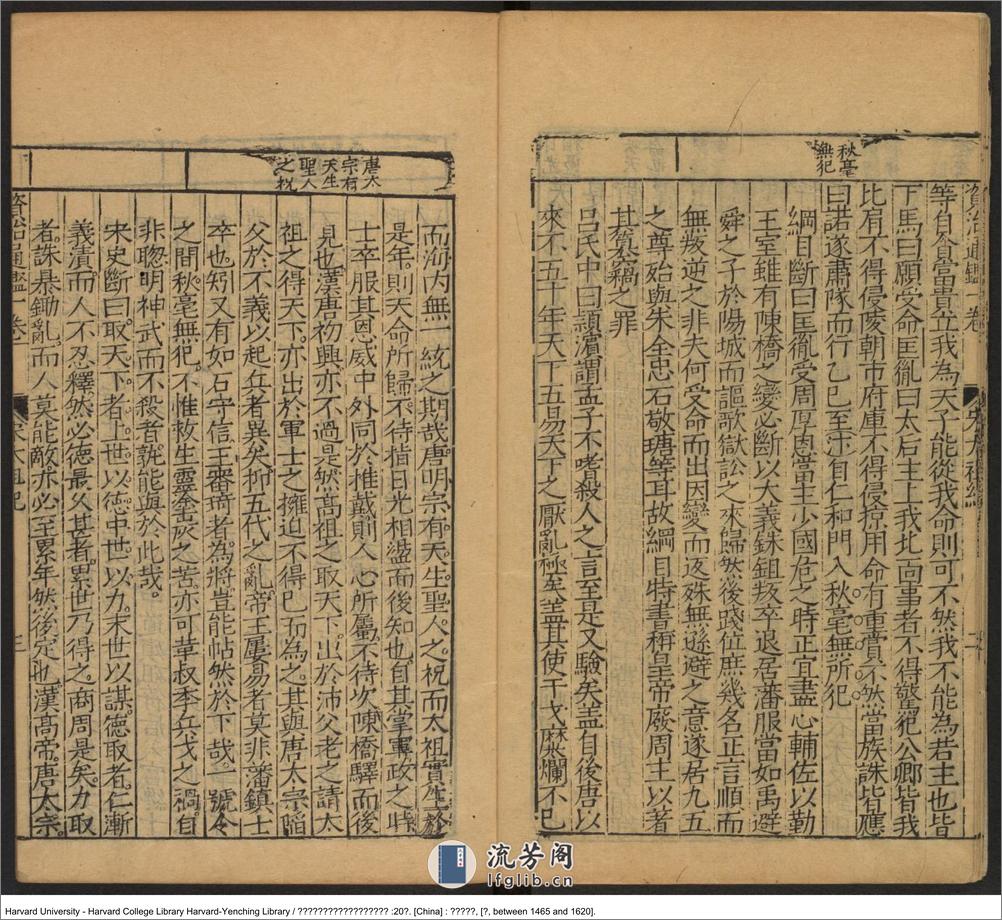 秋毫
無犯
等自貪富貴立我為天子能從我命則可不然我不能為若主也皆
下馬曰願受命匡胤曰太后主上我北面事者不得驚犯公卿皆我
比肩不得侵陵朝市府庫不得侵掠用命有重賞不然當族誅皆應
曰諾遂肅隊而行乙巳至汴自仁和門入秋毫無所犯
綱目斷曰匡胤受周厚恩當主少國危之時正宜盡心輔佐以勤
王室雖有陳橋之變必斷以大義銖鉏叛卒退居藩服當如禹避
舜之子於陽城而謳歌獄訟之來歸然後踐位庶幾名正言順而
無叛逆之非夫何受命而出因變而返殊無遜避之意遂居九五
之尊始與朱全忠石敬瑭等耳故綱目特書稱皇帝廢周主以著
其篡竊之罪
呂氏中曰潁濱謂孟子不嗜殺人之言至是又驗矣盖自後唐以
來不五十年天下五易天下之厭亂極矣盖其使干戈糜爛不已
資治通鑑 卷一
唐太
宗有
天生
聖人
之祝
而海內無一統之期哉唐明宗有天生聖人之祝而太祖實生於
是年則天命所歸不待指日光相盪而後知也自其掌軍政之時
士卒服其恩威中外同於推戴則人心所屬不待次陳橋驛而後
見也漢唐初興亦不過是然高祖之取天下出於沛父老之請太
祖之得天下亦出於軍士之擁迫不得已而為之其與唐太宗陷
父於不義以起兵者異矣抑五代之亂帝王屢易者莫非藩鎮士
卒也矧又有如石守信王審琦者為將豈能帖然於下哉一號令
之間秋毫無犯不惟救生靈塗炭之苦亦可革叔季兵戈之禍自
非聰明神武而不殺者孰能與於此哉
宋史斷曰取天下者上世以德中世以力末世以謀德取者仁漸
義漬而人不忍釋然必德最久甚者累世乃得之商周是矣力取
者誅暴鋤亂而人莫能敵亦必至累年然後定也漢高帝唐太宗
資治通鑑 卷一
宋太祖紀
三
流芳阁
lfglib.cn
Harvard University - Harvard College Library Harvard-Yenching Library / ?????????????????? :20?. [China] : ?????, [?, between 1465 and 1620].